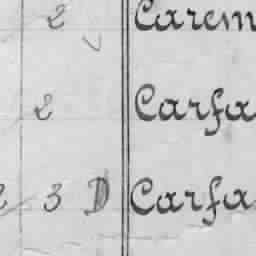 2 Carem
2 Carfa
2 3 D Carfa